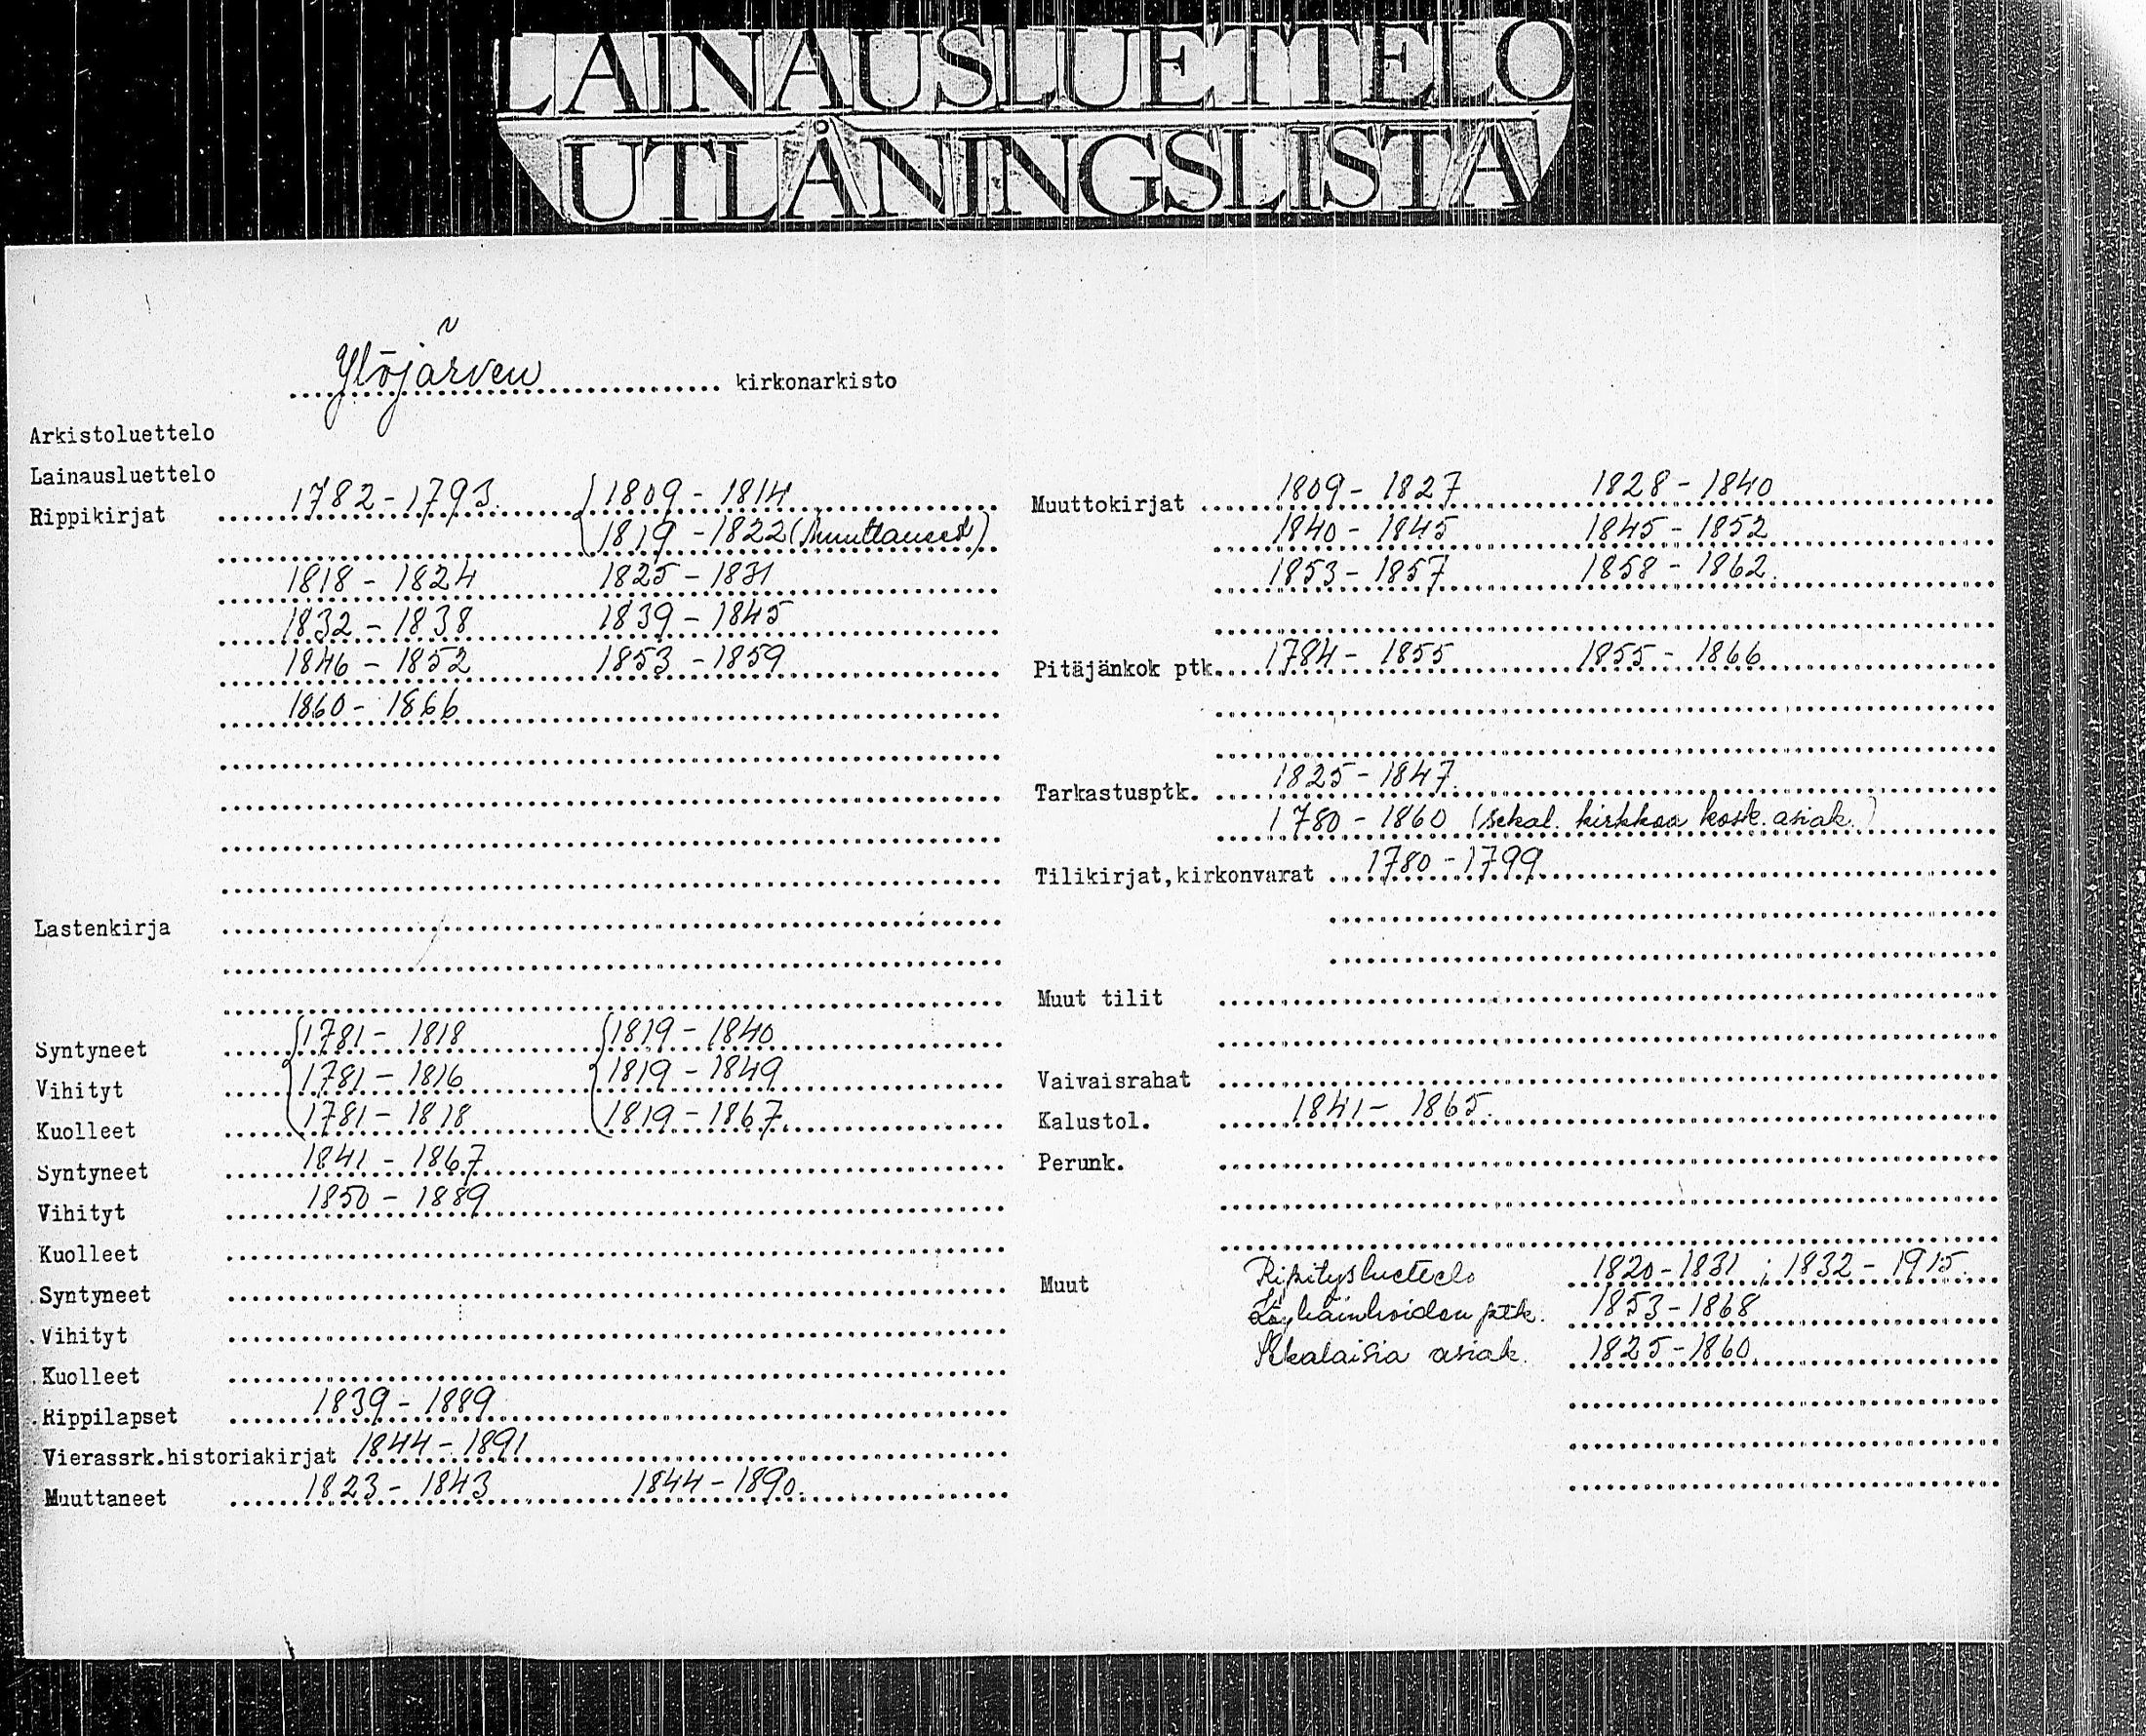 LAINAUSLUETTELO
UTLÅNINGSLISTA
Ylöjärven kirkonarkisto
Arkistoluettelo
Lainausluettelo
Rippikirjat 1782-1793. 1809-1814
1819-1822 (Muuttaneet)
1818-1824 1825-1831
1832-1838 1839-1845
1846-1852 1853-1859
1860-1866
Lastenkirja
Syntyneet 1781-1818 1819-1840
Vihityt 1781-1816 1819-1849
Kuolleet 1781-1818 1819-1867.
Syntyneet 1841-1867
Vihityt 1850-1889
Kuolleet
Syntyneet
Vihityt
Kuolleet
Rippilapset 1839-1889
Vierassrk.historiakirjat 1844-1891
Muuttaneet 1823-1843 1844-1890.
Muuttokirjat 1809-1827 1828-1840
1840-1845 1845-1852
1853-1857 1858-1862.
Pitäjänkok ptk. 1784-1855 1855-1866
Tarkastusptk. 1825-1847.
1780-1860 (sekal. kirkkoa kosk. asiak.)
Tilikirjat,kirkonvarat 1780-1799
Muut tilit
Vaivaisrahat
Kalustol. 1841-1865.
Perunk.
Muut Ripitysluettelo 1820-1831 ; 1832-1915.
Köyhäinhoidon ptk. 1853-1868
Sekalaisia asiak. 1825-1860